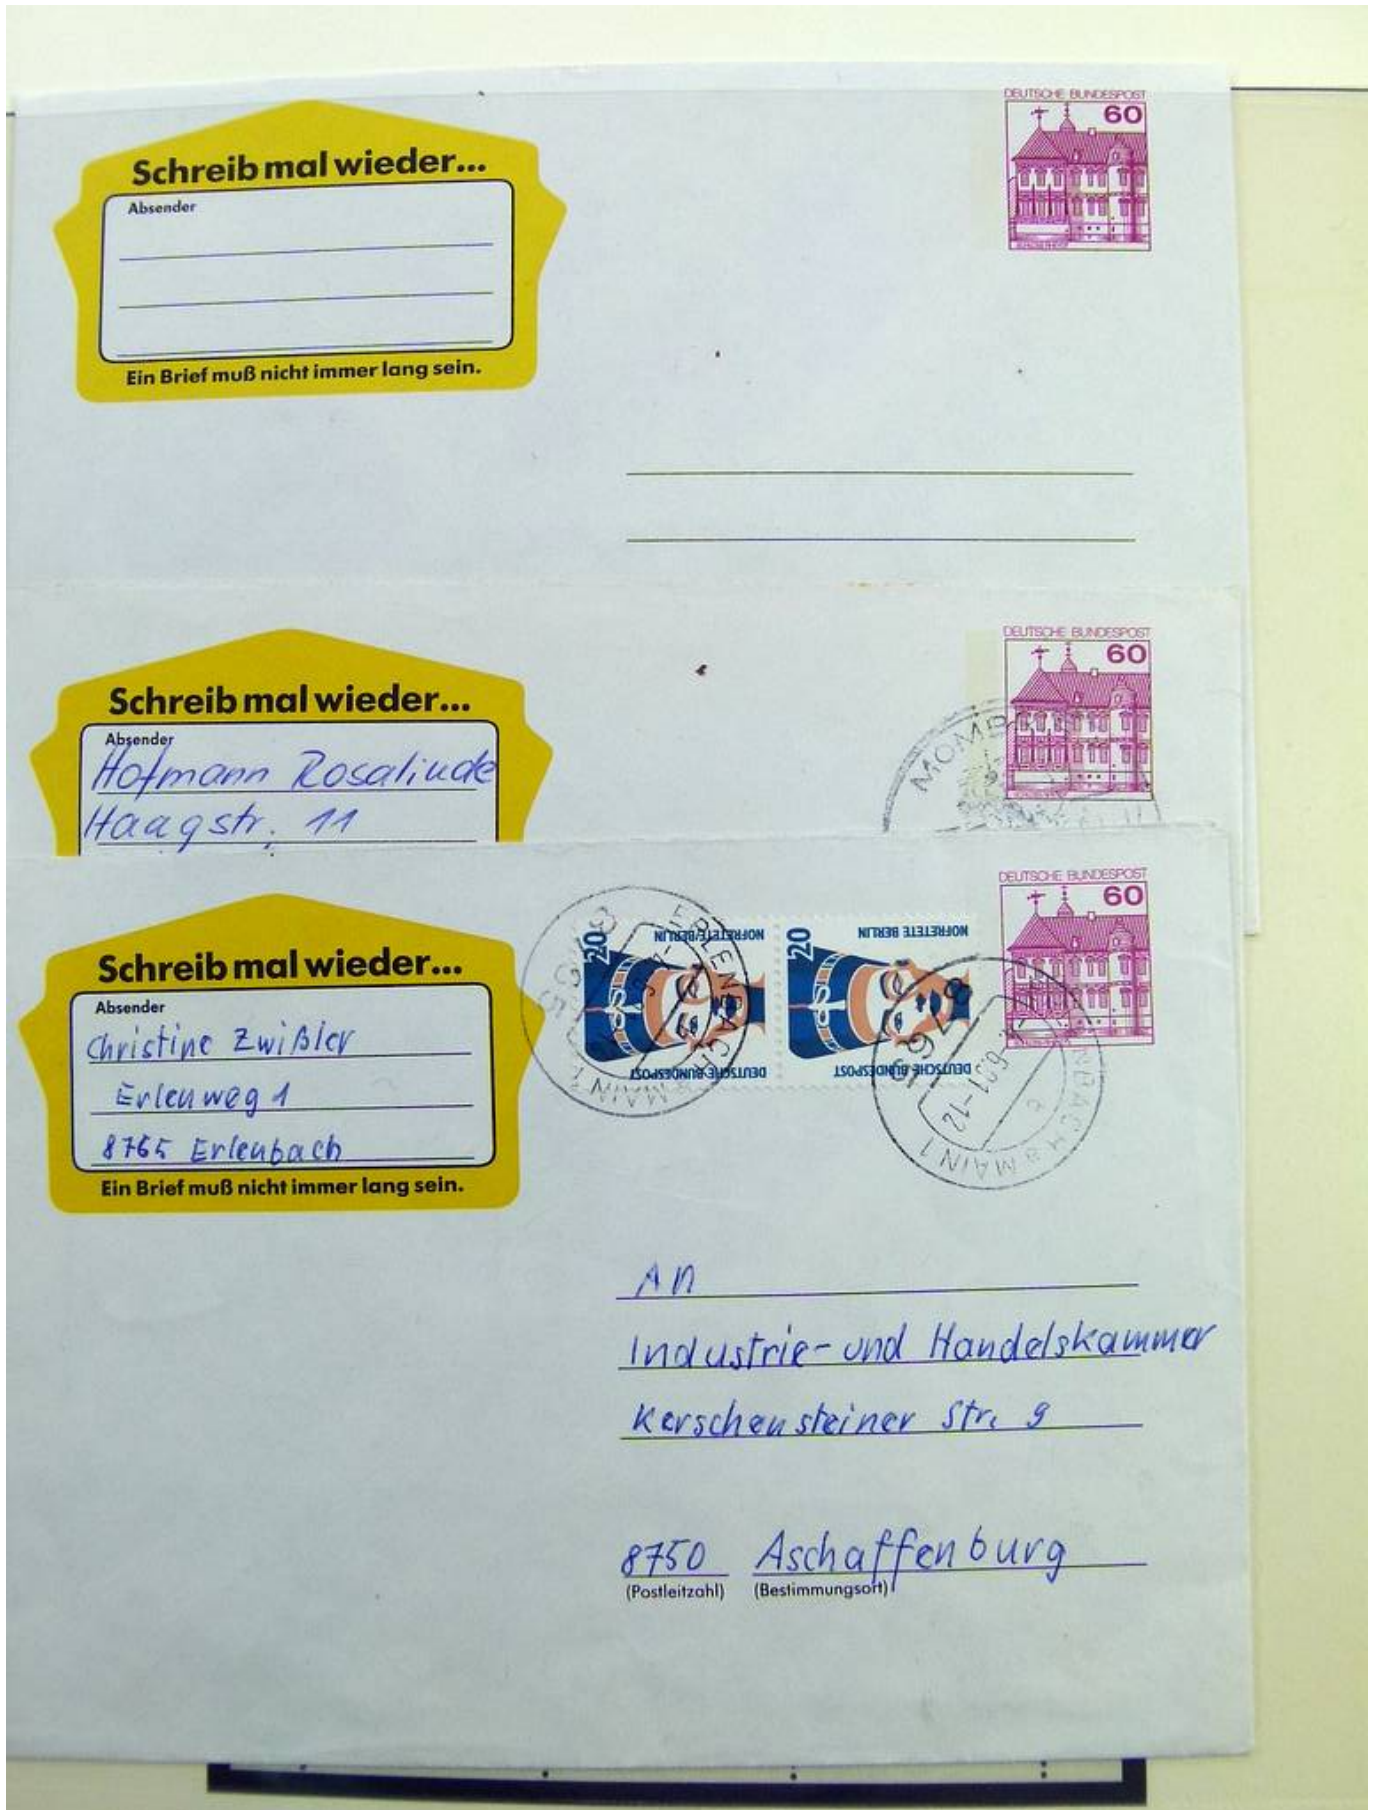 DEUTSCHE BUNDESPOST
60
Schreib mal wieder...
Absender
Ein Brief muß nicht immer lang sein.
DEUTSCHE BUNDESPOST
60
Schreib mal wieder...
Absender
Hofmann Rosalinde
Haagstr. 11
DEUTSCHE BUNDESPOST
60
Schreib mal wieder...
Absender
Christine Zwißler
Erlenweg 1
8765 Erlenbach
Ein Brief muß nicht immer lang sein.
20
NOFRETETE/BERLIN
DEUTSCHE BUNDESPOST
20
NOFRETETE BERLIN
DEUTSCHE BUNDESPOST
ERLENBACH
MAIN 1
8765
MAIN 1
An
Industrie- und Handelskammer
Kerschensteiner Str. 9
8750 Aschaffenburg
(Postleitzahl) (Bestimmungsort)